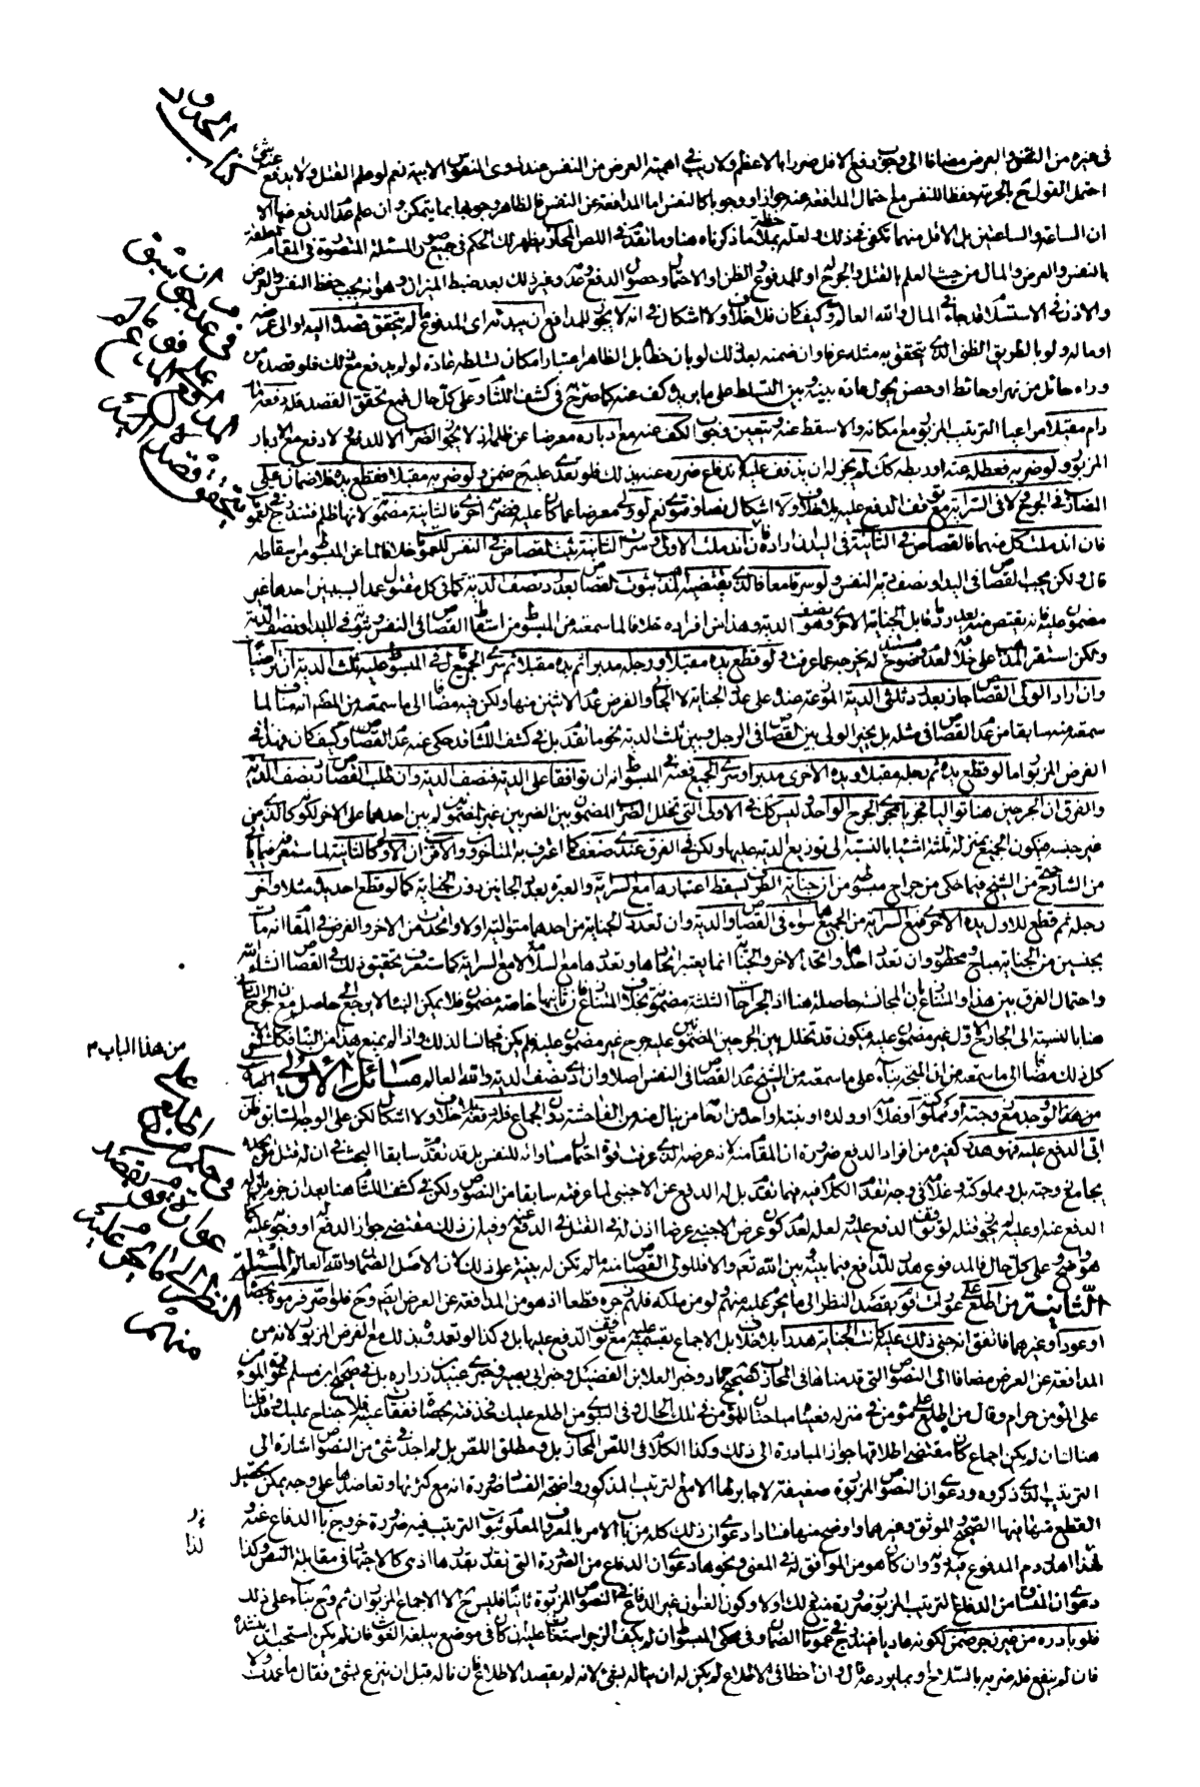 كتاب الحدود
في غيره من النفس والعرض مضافا الى وجوب دفع الاقل ضررا بالاعظم ولا ريب في اهمية العرض من النفس عند ذوى النفوس الابية نعم لو علم القتل ولا يدفع عنه شئ
احتمل القول بالحرمة حفظا للنفس مع احتمال المدافعة عنه جوازا ووجوبا كالنفس اما المدافعة عن النفس فالظاهر وجوبها بما يتمكن وان علم عدم الدفع فيها الا
ان الساعة والساعتين بل الاقل منهما تكون غير ذلك ولعله بملاحظة ما ذكرناه هنا وما تقدم في اللص المحارب يظهر لك الحكم في جميع صور المسئلة المتصورة في المقام المتعلقة
بالنفس والعرض والمال من حيث العلم بالقتل والجرح او للمدفوع والظن او الاحتمال وحصول الدفع وعدمه وغير ذلك بعد ضبط الميزان وهو انه يجب حفظ النفس والعرض
والاذن في الاستسلام قد جاءه في المال والله العالم وكيف كان فلا خلاف ولا اشكال في انه لا يجوز للمدافع ان يبدئه اى المدفوع ما لم يتحقق قصده اليه او الى عرضه
او ماله ولو بالطريق الظنى الذى يتحقق به مثله عرفا وان ضمنه بعد ذلك لو بان خطأ بل الظاهر اعتبار امكان تسلطه عادة لو لم يدفع مع ذلك فلو قصده من
وراء حائل من نهر او حائط او حصن يحول عادة بينه وبين التسلط على ما يريد كف عنه كما صرح به في كشف اللثام وعلى كل حال فمع تحقق القصد فله دفعه ما
دام مقبلا مراعيا الترتيب المزبور مع امكانه والا سقط عنه ويتعين وجوب الكف عنه مع ادباره معرضا عن ظلمه اذ لا يجوز الضرب الا للدفع ولا دفع مع الادبار
المزبور ولو ضربه فعطله عنه او ربطه كذلك لم يجز له ان يذفف عليه لاندفاع ضرره عنه بذلك فلو تعدى عليه ضمن ولو ضربه مقبلا فقطع يده فلا ضمان على
الضارب في الجرح ولا في السراية مع توقف الدفع عليه بلا خلاف ولا اشكال نصا وفتوى نعم لو ولى معرضا عما كان عليه فضربه اخرى فالثانية مضمونة لانها ظلم فتندرج في عموم
فان اندملت كل منهما فالقصاص في الثانية في اليد ان اراده فان اندملت الاولى وسرت الثانية يثبت القصاص في النفس للعموم خلافا لما عن المبسوط من اسقاطه
قال ولكن يجب القصاص في اليد او نصف دية النفس ولو سرتا معا فالذى يقتضيه المذهب ثبوت القصاص بعد رد نصف الدية كما في كل مقتول عمدا بسببين احدهما غير
مضمون عليه فانه يقتص منه بعد رد ما قابل الجناية الاخرى وهو نصف الدية وهذا من افراده خلافا لما سمعته من المبسوط من اسقاط القصاص في النفس وثبوته في لليد او نصف الدية
ولكن استقر المذهب على خلافه لعدم وضوح مستند له يخرجه عما عرفت ولو قطع يده مقبلا ورجله مدبرا ثم يده مقبلا ثم سرى الجميع قال في المبسوط عليه ثلث الدية ان تراضيا
وان اراد الولى القصاص جاز بعد رد ثلثى الدية الموزعة عنده على عدد الجناية لا الجانى والفرض عدم الاثنين منها ولكن فيه مضافا الى ما سمعته من المحكم انه مناف لما
سمعته منه سابقا من عدم القصاص في مثله بل يخير الولى بين القصاص في الرجل وبين ثلث الدية نحو ما تقدم بل في كشف اللثام قد حكى عنه عدم القصاص وكيف كان فهذا في
الفرض المزبور اما لو قطع يده ثم رجله مقبلا ويده الاخرى مدبرا وسرى الجميع فعنه في المبسوط انه ان توافقا على الدية فنصف الدية وان طلب القصاص رد نصف الدية
والفرق ان الجرحين هنا تواليا فجريا مجرى الجرح الواحد وليس كذلك في الاولى التى تخلل الضرب المضمون بين الضربين غير المضمونين له بين احدهما على الاخر لكونه كالذى من
غير جنسه فيكون الجميع بمنزلة ثلثة اشياء بالنسبة الى توزيع الدية عليها ولكن في الفرق عندى ضعف كما اعترف به المتاخرون والاقرب ان الاولى كالثانية لما ستعرفه فيما يأتى
من الشارح من الشيخ فيما حكى من جراح مبسوطه من ان جناية الطرف يسقط اعتبارها مع السراية والعبرة بعدد الجانين دون الجناية كما لو قطع احد يده مثلا واخر
رجله ثم قطع للاول يده الاخرى فمع السراية من الجميع هما سواء في القصاص والدية وان تعددت الجناية من احدهما متوالية او لا واتحدت من الاخر والفرض في المقام انه مات
بجنسين من الجناية مباح ومحظور وان تعدد احدهما واتحد الاخر والجناية انما يعتبر اتحادها وتعددها مع السلامة لا مع السراية كما ستعرف تحقيق ذلك في القصاص انشاء الله
واحتمال الفرق بين هذا والمتنازع بان المجانسة حاصلة هنا اذ الجراحات الثلثة مضمونة بخلاف المتنازع فان ثانيها خاصة مضمون فلا يمكن البناء لا يرجع الى حاصل مع ان الجرح الثانى
هنا بالنسبة الى الجارح الاول غير مضمون عليه فيكون قد تخلل بين الجرحين المضمونين عليه جرح غير مضمون عليه فلم يكن مجانسا لذلك واذا لم يمنع هذا من البناء فكذلك
كل ذلك مضافا الى ما سمعته من ان المتجه بناء على ما سمعته من الشيخ عدم القصاص في النفس اصلا وان ادى نصف الدية والله العالم مسائل الاولى
من هذا الباب لو وجد مع زوجته او مملوكته او غلامه او ولده او بنته او احد من ارحامه من ينال منه من الفاحشة دون الجماع فله دفعه بلا خلاف ولا اشكال لكن على الوجه السابق فان
اتى الدفع عليه فهو هدر كغيره من افراد الدفع ضرورة ان المقام منه لانه عرضه الذى عرفت قوة احتمال مساواته للنفس بل قد تقدم سابقا البحث في ان له قتل من يجده
يجامع زوجته بل ومملوكته وغلامه في وجه تقدم الكلام فيه فيما تقدم بل له الدفع عن الاجنبى لما عرفته سابقا من النصوص ولكن في كشف اللثام هنا بعد ان جوز له
الدفع عنه او عليه لم يجوز قتله لو توقف الدفع عليه ولعله لعدم كون عرض الاجنبى عرضا اذن له في القتل في الدفع عنه وفيه ان ذلك مقتضى جواز الدفع او وجوبه عليه كما
هو واضح وعلى كل حال فالمدفوع هدر للدافع فيما بينه وبين الله تعالى والا فللولى القصاص منه ما لم تكن له بينة على ذلك لان الاصل الضمان والله العالم المسئلة
الثانية من اطلع على عورات قوم بقصد النظر الى ما يحرم عليه منهم ولو من ملكه فلهم زجره قطعا اذ هو من المدافعة عن العرض ايضا وح فلو اصر فرموه بحصاة
او عود او غيرهما فاتفق انه جنى ذلك عليه كانت الجناية هدرا بلا خلاف بل الاجماع بقسميه عليه مع توقف الدفع عليها بل وكذا لو تعدوه بذلك مع الفرض المزبور لانه من
المدافعة عن العرض مضافا الى النصوص التى قدمناها في المحارب كصحيح حماد وخبر العلا بن الفضيل وخبر ابى بصير وخبرى عبيد بن زرارة بل في صحيح ابن مسلم عورة المؤمن
على المؤمن حرام وقال من اطلع على مؤمن في منزله فعيناه مباحتان للمؤمن في تلك الحال وفي النبوى من اطلع عليك فخذفته بحصاة ففقأت عينه فلا جناح عليك وقد قلنا
هنالك ان لم يكن اجماع كان مقتضى اطلاقها جواز المبادرة الى ذلك وكذا الكلام في اللص المحارب بل ومطلق اللص بل لم اجد في شئ من النصوص اشارة الى
الترتيب الذى ذكروه ودعوى ان النصوص المزبورة ضعيفة لا جابر لها الا مع الترتيب المذكور واضحة الفساد ضرورة انه مع كثرتها وتعاضدها على وجه يمكن تحصيل
القطع منها فيها الصحيح والموثق وغيرهما واوضح منها فسادا دعوى ان ذلك كله من باب الامر بالمعروف المعلوم ثبوت الترتيب فيه ضرورة خروج باب الدفاع عنه
لهذا اهدر دم المدفوع فيه دونه وان كان هو من الموافق له في المعنى ونحوها دعوى ان الدفاع من الضرورة التى تقدر بقدرها اذ هى كالاجتهاد في مقابلة النص وكذا
دعوى ان المنساق من الدفاع الترتيب المزبور ضرورة منع ذلك اولا وكون العنوان غير الدفاع في النصوص المزبورة ثانيا فليس ح الا الاجماع المزبور ان تم ومع بناء على ذلك
فلو بادره من غير زجر ضمن لكونه عاديا فيندرج في عمومات الضمان وفي محكى المبسوط ان لم يكف الزجر استغاث عليه ان كان في موضع يبلغه الغوث فان لم يكن استحب ان ينشده
فان لم ينفع فله ضربه بالسلاح او بما يردعه قال وان اخطأ في الاطلاع لم يكن له ان يناله بشئ لانه لم يقصد الاطلاع فان ناله قبل ان ينزع بشئ فقال ما عمدت ولا
في ان شرط
المدافع
تحقق قصد اليه
من هذا الباب م
في حكم من اطلع على
عورات قوم بقصد
النظر الى ما يحرم عليه
منهم